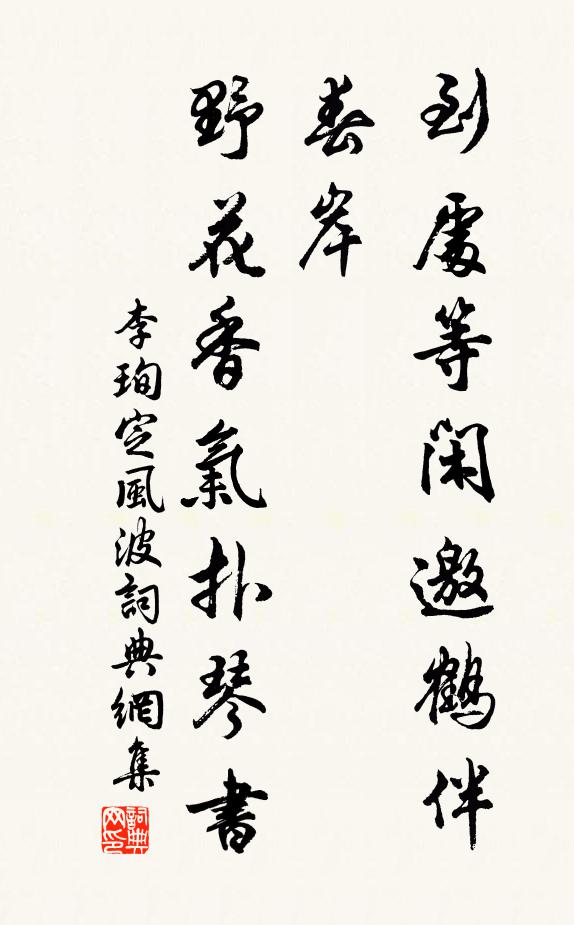 到處等閑邀鶴伴
春岸
野花香氣扑琴書
李珣定風波詞典網集
詞典网印